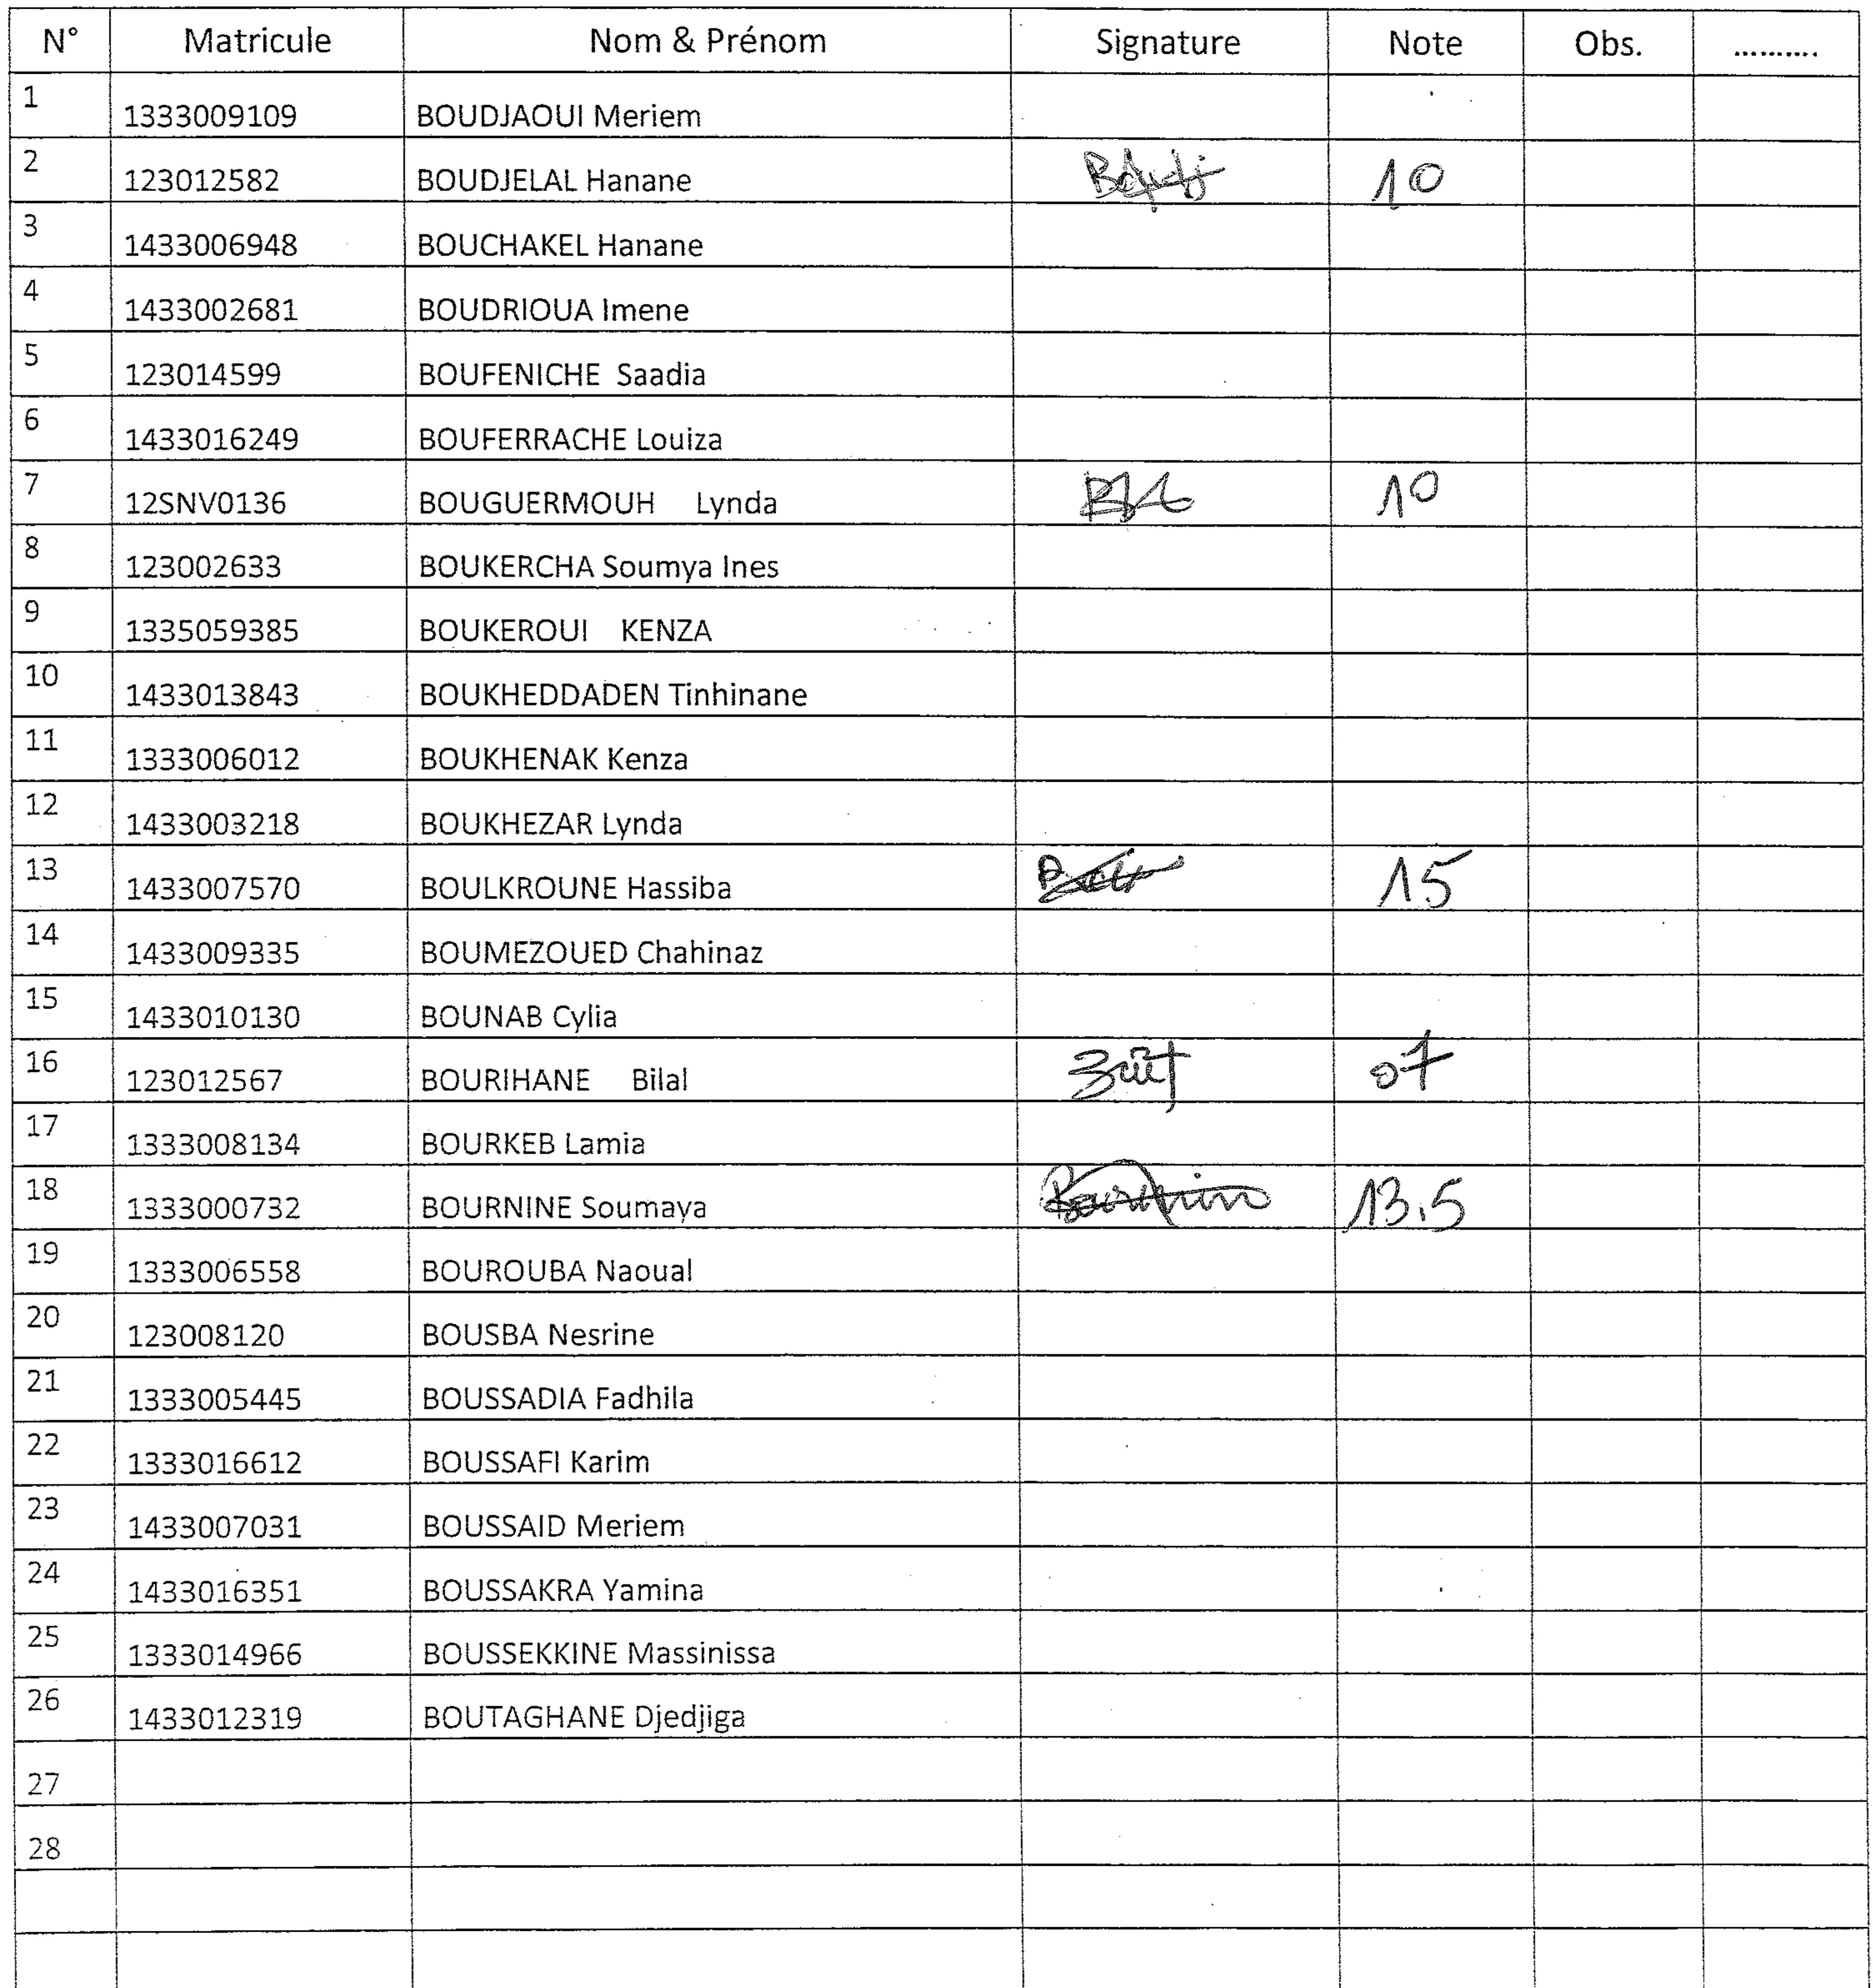 N° Matricule Nom & Prénom Signature Note Obs. ..........
1 1333009109 BOUDJAOUI Meriem
2 123012582 BOUDJELAL Hanane Boudj 10
3 1433006948 BOUCHAKEL Hanane
4 1433002681 BOUDRIOUA Imene
5 123014599 BOUFENICHE Saadia
6 1433016249 BOUFERRACHE Louiza
7 12SNV0136 BOUGUERMOUH Lynda 10
8 123002633 BOUKERCHA Soumya Ines
9 1335059385 BOUKEROUI KENZA
10 1433013843 BOUKHEDDADEN Tinhinane
11 1333006012 BOUKHENAK Kenza
12 1433003218 BOUKHEZAR Lynda
13 1433007570 BOULKROUNE Hassiba 15
14 1433009335 BOUMEZOUED Chahinaz
15 1433010130 BOUNAB Cylia
16 123012567 BOURIHANE Bilal 07
17 1333008134 BOURKEB Lamia
18 1333000732 BOURNINE Soumaya Bournine 13.5
19 1333006558 BOUROUBA Naoual
20 123008120 BOUSBA Nesrine
21 1333005445 BOUSSADIA Fadhila
22 1333016612 BOUSSAFI Karim
23 1433007031 BOUSSAID Meriem
24 1433016351 BOUSSAKRA Yamina
25 1333014966 BOUSSEKKINE Massinissa
26 1433012319 BOUTAGHANE Djedjiga
27
28